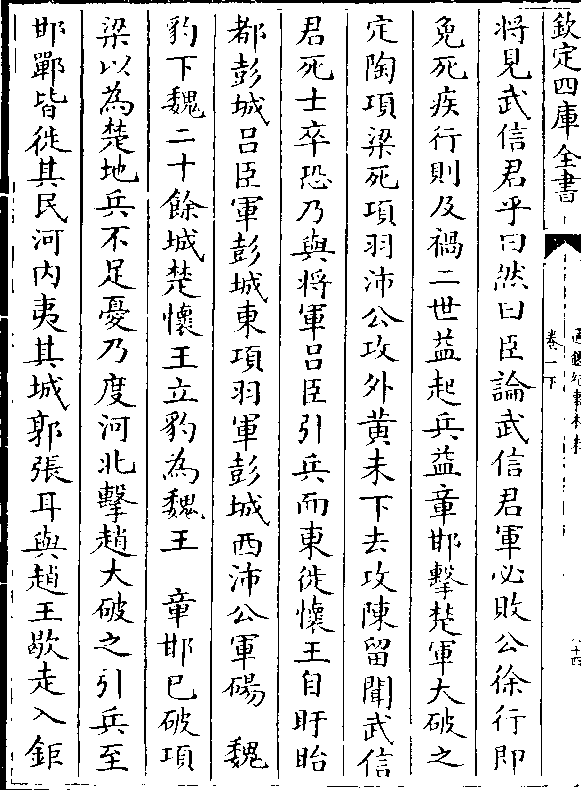 欽定四庫全書
卷一下
將見武信君乎曰然曰臣論武信君軍必敗公徐行即
免死疾行則及禍二世益起兵益章邯擊楚軍大破之
定陶項梁死項羽沛公攻外黄未下去攻陳留聞武信
君死士卒恐乃與將軍吕臣引兵而東徙懷王自盱眙
都彭城吕臣軍彭城東項羽軍彭城西沛公軍碭　魏
豹下魏二十餘城楚懷王立豹為魏王　章邯已破項
梁以為楚地兵不足憂乃度河北擊趙大破之引兵至
邯鄲皆徙其民河内夷其城郭張耳與趙王歇走入鉅